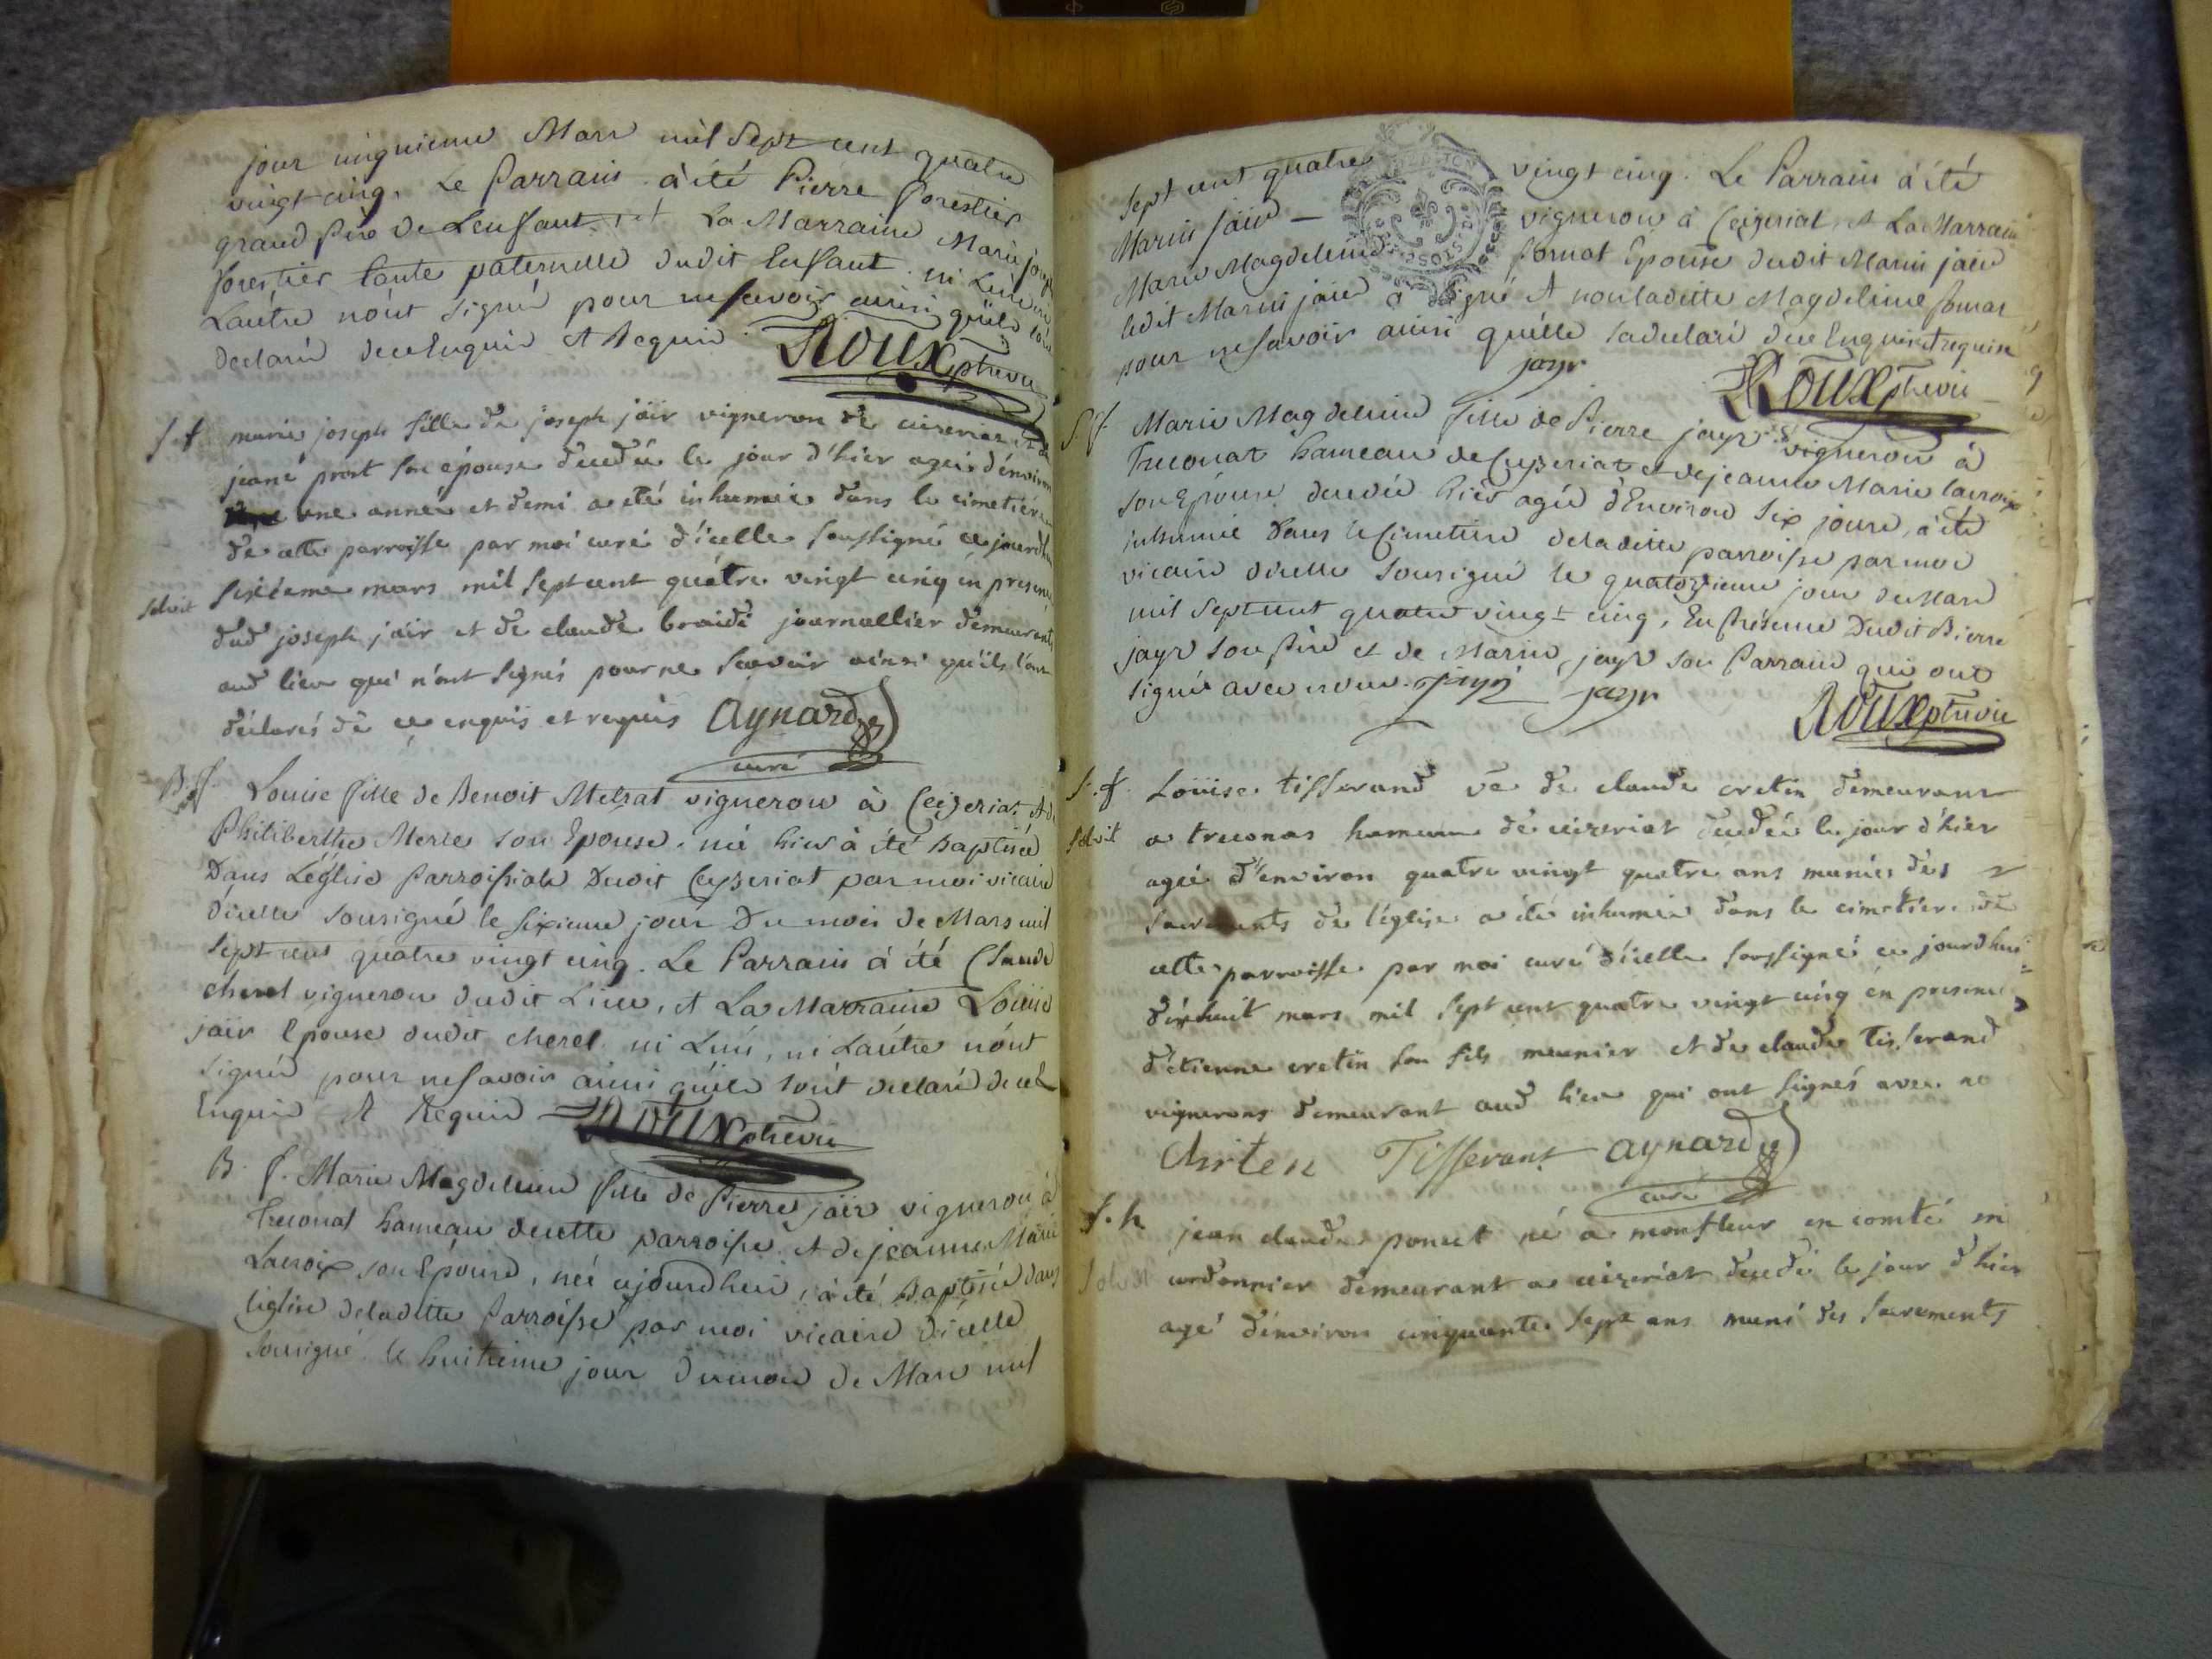 jour cinquieme Mars mil Sept cent quatre
vingt cinq. Le Parrain à été Pierre forestier
grand Père de Lenfant, et La Marraine Marie joseph
forestier tante paternelle dudit Enfant. ni Lun ni
Lautre n'ont signé pour ne savoir ainsi qu'ils l'ont
declaré de ce Enquis et Requis. Roux ptre vic
S. f. marie joseph fille de joseph jaïr vigneron de ceizeriat et de
jeane prost son épouse decedée le jour d'hier agée d'environ
une année et demi a été inhumée dans le cimetiere
de cette parroisse par moi curé d'icelle soussigné ce jourdhui
sixieme mars mil sept cent quatre vingt cinq en presence
solvit
dud joseph jaïr et de claude braidé journallier demeurants
aud lieu qui n'ont signés pour ne sçavoir ainsi qu'ils l'ont
déclarés de ce enquis et requis Aynard
curé
B. f. Louise fille de Benoit Melzat vigneron à Ceizeriat et de
Philiberthe Merle son Epouse, née hier à été Baptisée
Dans L'église Parroissiale Dudit Ceyzeriat par moi vicaire
d'icelle sousigné le sixieme jour Du mois de Mars mil
sept cent quatre vingt cinq. Le Parrain à été Claude
cherel vigneron dudit Lieu, et La Marraine Louise
jaïr Epouse dudit cherel ni L'un, ni L'autre n'ont
signés pour ne savoir ainsi qu'ils l'ont declaré de ce
Enquis et Requis Roux ptre vic
B. f. Marie Magdeleine fille de Pierre jaïr vigneron à
Treconat hameau de cette parroisse et de jeanne Marie
Lacroix son Epouse, née ajourdhui, à été Baptisée dans
l'église de la ditte Parroisse par moi vicaire d'icelle
sousigné le huitieme jour du mois de Mars mil
Sept cent quatre vingt cinq. Le Parrain à été
Marin jaïr — vigneron à Ceizeriat, et La Marraine
Marie Magdeleine fornat Epouse dudit Marin jaïr
ledit Marin jaïr a signé et non la ditte Magdeleine fornat
pour ne savoir ainsi qu'elle l'a declaré de ce Enquise et requise
jayr Roux ptre vic
S. f. Marie Magdeleine fille de Pierre jayr vigneron à
Treconat hameau de Ceyzeriat et de jeanne Marie lacroix
son Epouse decedée hier agée d'Environ six jours, à été
inhumée Dans le Cimetiere de la ditte parroisse par moi
vicaire d'icelle sousigné le quatorzieme jour de Mars
mil sept cent quatre vingt cinq, En Présence Dudit Pierre
jayr son Père et de Marin jayr son Parrain qui ont
signé avec nous. jayr jayr
Roux ptre vic
S. f. Loüise tisserand ve de claude cretin demeurant
solvit a treconas hameau de ceizeriat decedée le jour d'hier
agée d'environ quatre vingt quatre ans munies des
sacrements de l'église a été inhumée dans le cimetiere de
cette parroisse par moi curé d'icelle soussigné ce jourdhui
dixhuit mars mil sept cent quatre vingt cinq en presence
d'etienne cretin son fils meunier et de claude tisserand
vignerons demeurant aud lieu qui ont signés avec no
Chriten Tisserant Aynard
curé
S. h jean claude poncet né a monfleur en comté
Solvit cordonnier demeurant a ceizeriat decedé le jour d'hier
agé d'environ cinquante sept ans muni des sacrements